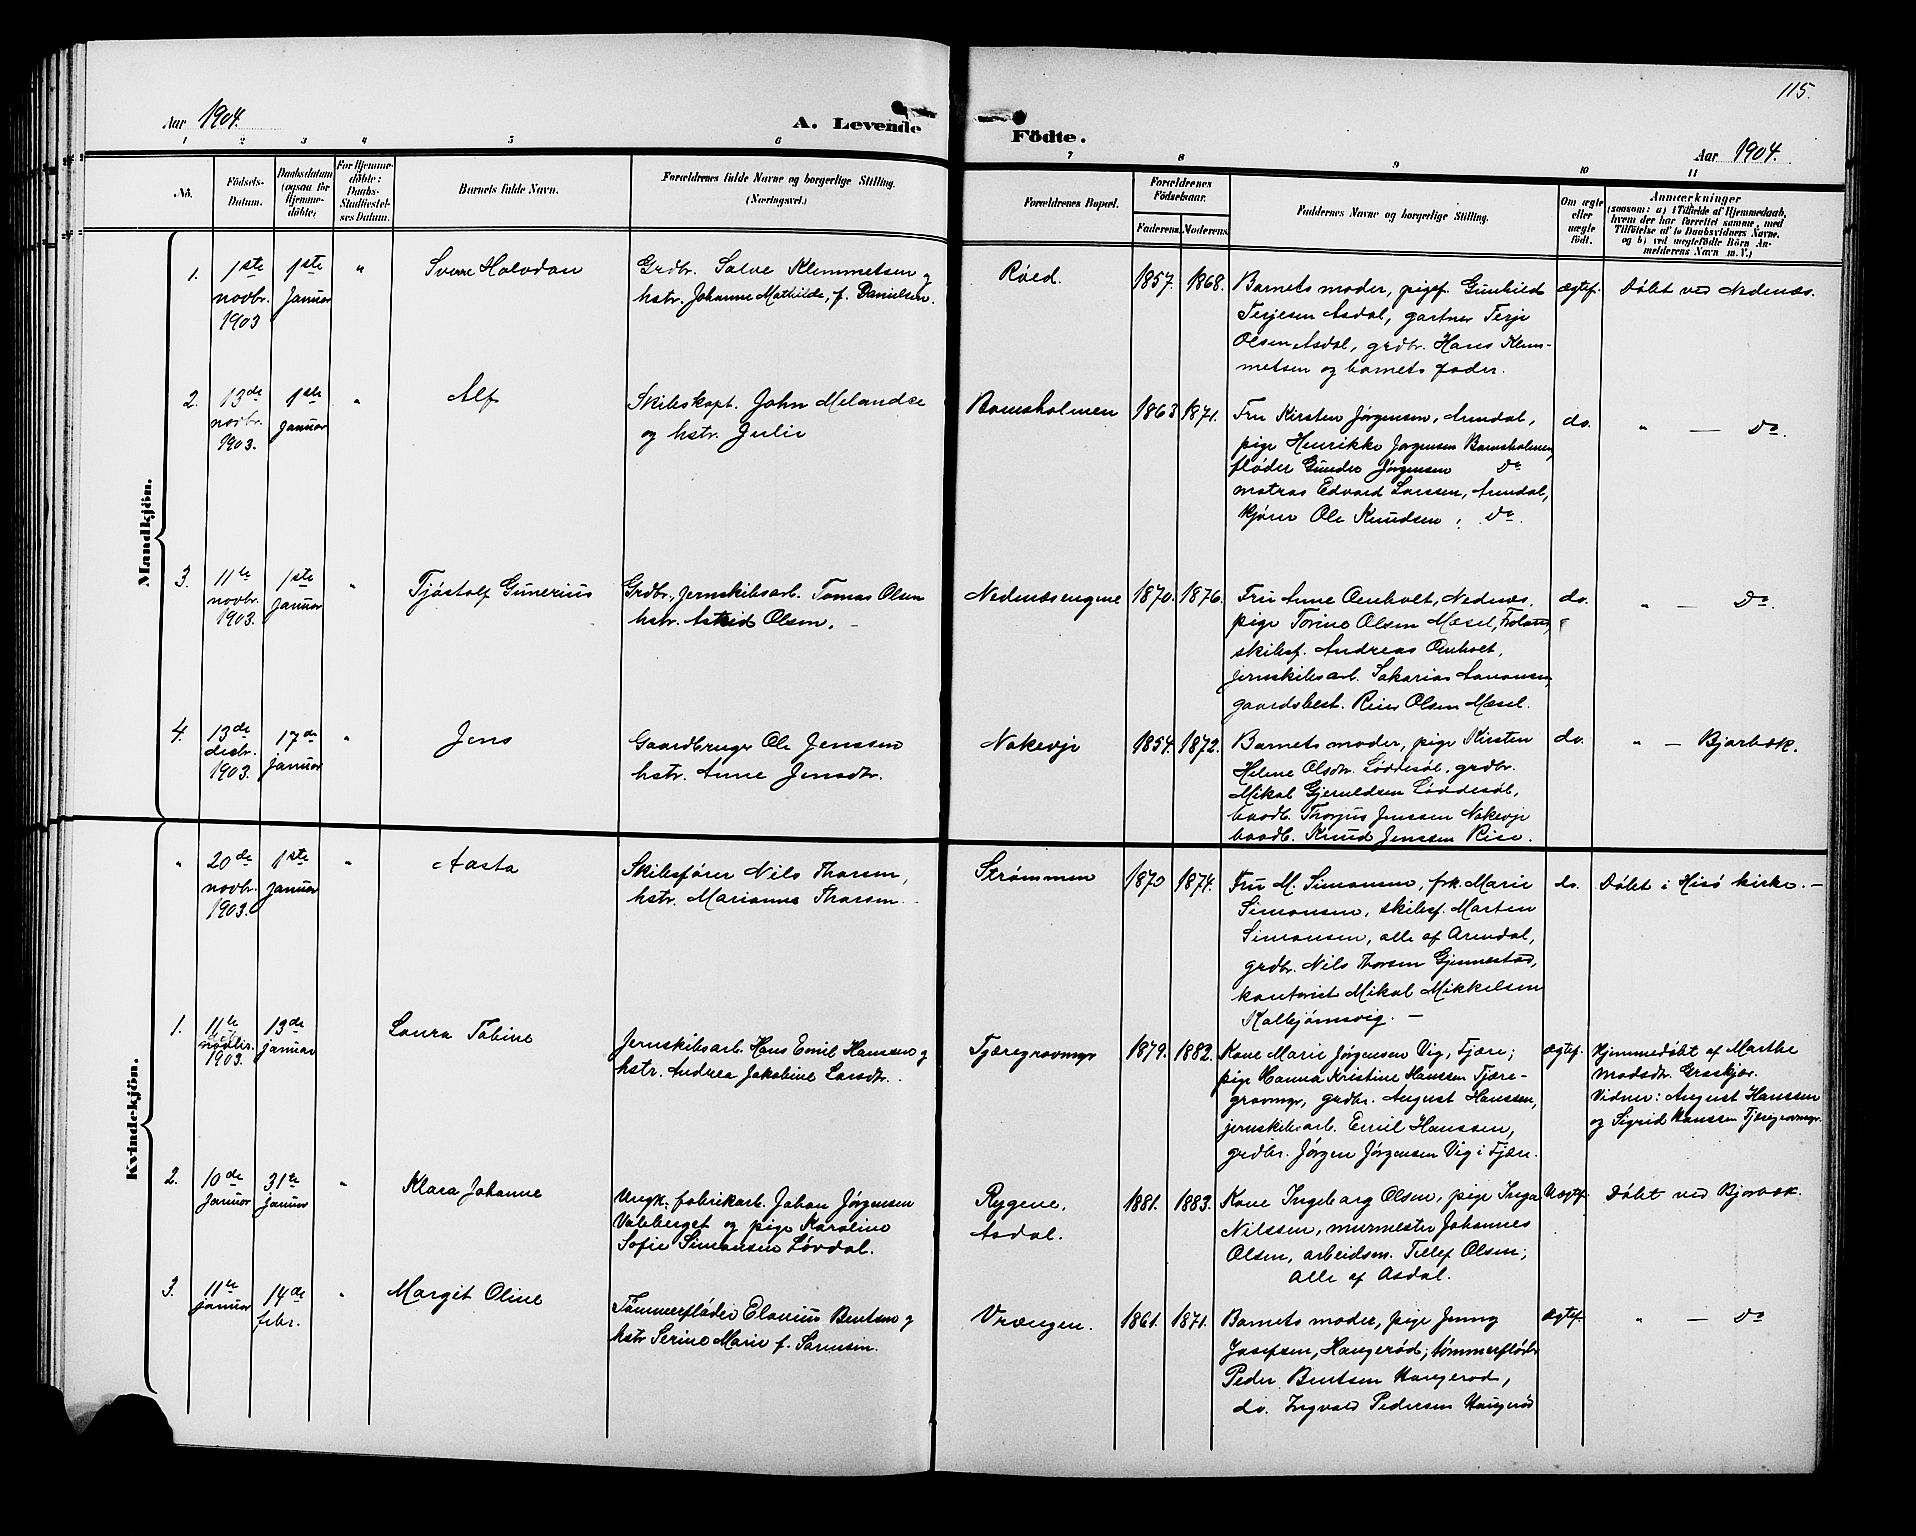 115.
Aar 1904.
A. Levende Födte.
Aar 1904.
1 2 3 4 5 6 7 8 9 10 11
Nö.
Födsels-Datum.
Daabsdatum (ogsaa for Hjemmedöbte)
For Hjemmedöbte: Daabs-Stadfæstelses Datum.
Barnets fulde Navn.
Forældrenes fulde Navne og borgerlige Stilling. (Næringsvei.)
Forældrenes Bopæl.
Forældrenes Födselsaar.
Faderens. Moderens.
Faddernes Navne og borgerlige Stilling.
Om ægte eller uægte födt.
Anmærkninger
(saasom: a) i Tilfælde af Hjemmedaab,
hvem der har forrettet samme, med
Tilföielse af to Daabsvidners Navne.
og b) ved uægtefödte Börn An-
melderens Navn m. V.)
Mandkjön.
1.
1ste novbr. 1903
1ste Januar
"
Sverre Halvdan
Grdbr. Salve Klemmetsen og
hstr. Johanne Mathilde, f. Danielsen.
Røed.
1857. 1868.
Barnets moder, pigef. Gunhild
Terjesen Asdal, gartner Terje
Olsen Asdal, grdbr. Hans Klem-
metsen og barnets fader.
ægtef.
Døbt ved Nedenæs.
2.
13de novbr. 1903.
1ste Januar
"
Alf
Skibskapt. John Melandsø
og hstr. Julie
Bomsholmen
1863 1871.
Fru Kirsten Jørgensen, Arendal,
pige Henrikke Jørgensen Bomsholmen,
fløder Gunder Jørgensen do
matros Edvard Larsen, Arendal,
kjører Ole Knudsen, do.
do.
" — Do.
3.
11te novbr. 1903.
1ste Januar
"
Tjøstolf Gunerius
Grdbr., jernskibsarb. Tomas Olsen
hstr. Astrid Olsen.
Nedenæsengene
1870. 1876.
Fru Anne Omholt, Nedenæs.
pige Torine Olsen Mæsel, Froland,
skibsf. Andreas Omholt,
jernskibsarb. Sakarias Aanonsen,
gaardsbest. Reier Olsen Mæsel.
do.
" — Do.
4.
13de desbr. 1903.
17de Januar
"
Jens
Gaardbruger Ole Jenssen
hstr. Anne Jensdtr.
Nakevje
1854. 1872.
Barnets moder, pige Kirsten
Helene Olsdtr. Løddesøl, grdbr.
Mikal Gjeruldsen Løddesøl,
baadb. Thorjus Jenssen Nakevje
baadb. Knud Jenssen Rise.
do.
" — Bjorbæk.
Kvindekjön.
"
20de novbr. 1903.
1ste Januar
"
Aasta
Skibsfører Nils Thorsen,
hstr. Marianne Thorsen.
Strømmen
1870 1874.
Fru M. Simonsen, frk. Marie
Simonsen, skibsf. Marten
Simonsen, alle af Arendal,
grdbr. Nils Thorsen Gjennestad,
kontorist Mikal Mikkelsen
Kolbjørnsvig. —
do.
Døbt i Hisø kirke. —
1.
11te novbr. 1903.
13de januar
Laura Tobine
Jernskibsarb. Hans Emil Hanssen og
hstr. Andrea Jakobine Larsdtr.
Tjæregravmyr
1879. 1882.
Kone Marie Jørgensen Vig, Fjære;
pige Hanna Kristine Hanssen Tjære-
gravmyr, grdbr. August Hanssen,
jernskibsarb. Emil Hanssen,
grdbr. Jørgen Jørgensen Vig i Fjære.
Ægtef.
Hjemmedøbt af Marthe
Madsdtr. Græskjær.
Vidner: August Hanssen
og Sigrid Hanssen Tjæregravmyr.
2.
10de Januar
31te Januar
"
Klara Johanne
Ungk. fabrikarb. Johan Jørgensen
Valeberget og pige Karoline
Sofie Simonsen Løvdal.
Rygene,
Asdal.
1881. 1883.
Kone Ingeborg Olsen, pige Inga
Nilssen, murmester Johannes
Olsen, arbeidsm. Tellef Olsen;
Alle af Asdal.
Uægtef.
Døbt ved Bjorbæk.
3.
11te januar
14de febr.
"
Margit Oline
Tømmerfløder Elevius Bentsen og
hstr Serine Marie f. Sørensen.
Vrængen.
1861. 1871.
Barnets moder, pige Jenny
Josefsen, Haugerød, tømmerfløder
Peder Bentsen Haugerød,
do. Ingvald Pedersen Haugerød
Ægtef.
" — Do